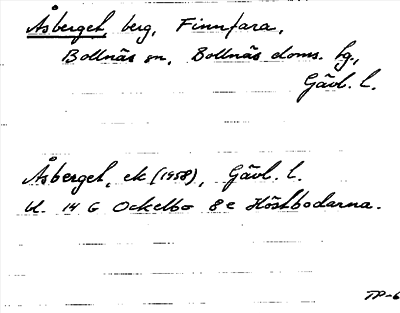 Åsberget, berg, Finnfara,
Bollnäs sn, Bollnäs doms. hg.,
Gävl. l.
Åsberget, ek (1958), Gävl. l.
bl. 14 G Ockelbo 8 e Höstbodarna.
TP-6